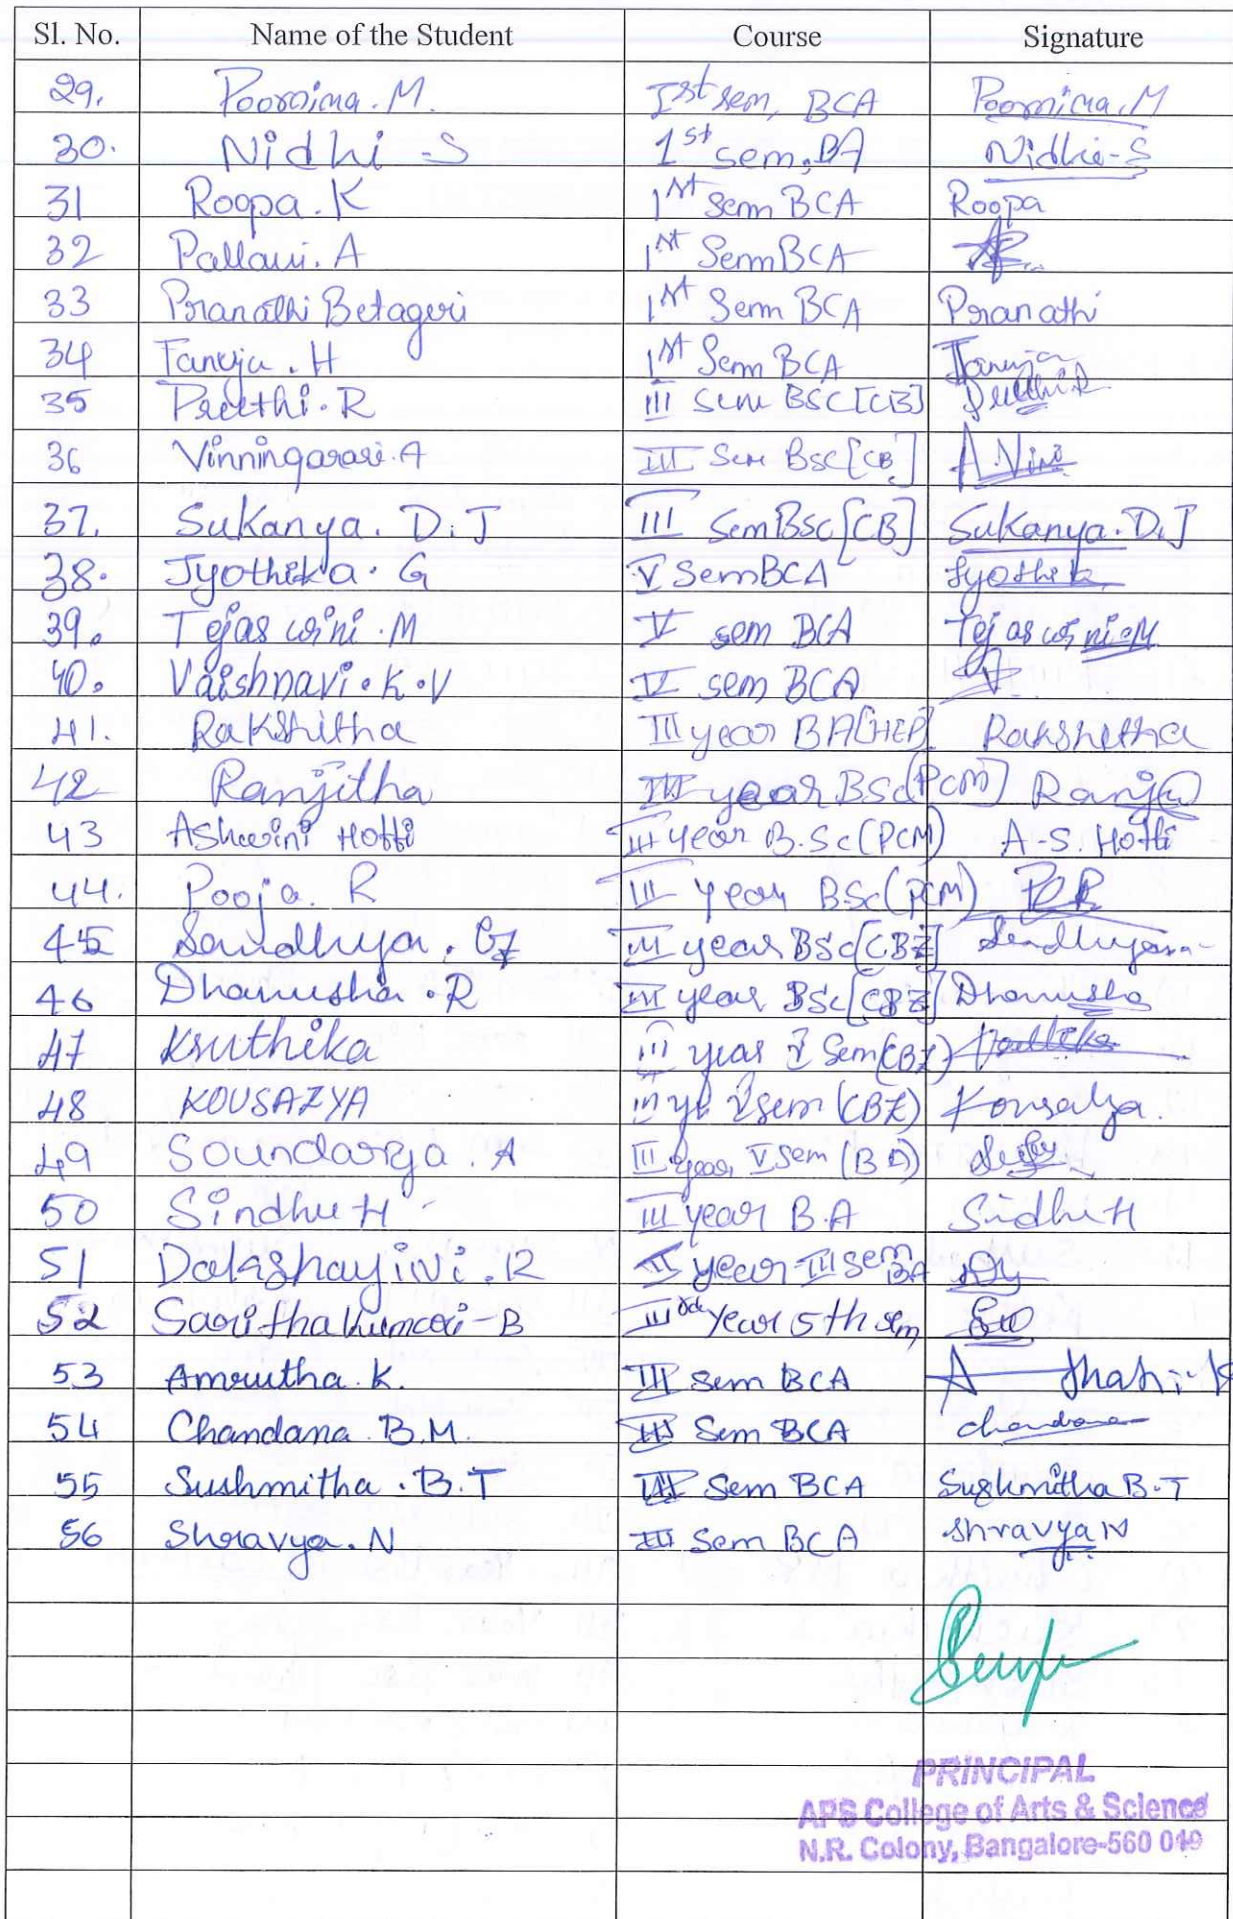 Sl. No. Name of the Student Course Signature
29. Poornima. M. Ist sem, BCA Poornima.M
30. Nidhi -S 1st sem, BA Nidhi-S
31 Roopa. K 1st Sem BCA Roopa
32 Pallavi. A 1st Sem BCA
33 Pranathi Betageri 1st Sem BCA Pranathi
34 Tanuja. H 1st Sem BCA Tanuja
35 Preethi. R III Sem BSC [CB] Preethi R
36 Vinningarasi. A III Sem BSc [CB] A.Vini
37. Sukanya. D. J III Sem BSc [CB] Sukanya. D.J
38. Jyothika. G V Sem BCA Jyothik
39. Tejaswini .M V sem BCA Tejaswini.M
40. Vaishnavi. K. V V sem BCA
41. Rakshitha III year BA[HEP] Rakshitha
42 Ranjitha III year BSc(PCM) Ranj
43 Ashwini Hotti III year B.Sc(PCM) A-S. Hotti
44. Pooja. R III year BSc (PCM)
45 Sandhya. G III year BSc[CBZ] Sandhya
46 Dhanusha .R III year BSc[CBZ] Dhanusha
47 Kruthika III year V Sem(CBZ) Kruthika
48 KOUSALYA III yr V sem (CBZ) Kousalya.
49 Soundarya . A III year, V Sem
50 Sindhu H III year B.A Sidhu H
51 Dakshayini .R II year III sem BA
52 Sarithakumari-B III rd year 5th sem
53 Amrutha. K. III sem BCA
54 Chandana B.M. III Sem BCA chandana
55 Sushmitha. B.T III Sem BCA Sushmitha B.T
56 Shravya. N III Sem BCA Shravya N
PRINCIPAL
APS College of Arts & Science
N.R. Colony, Bangalore-560 019